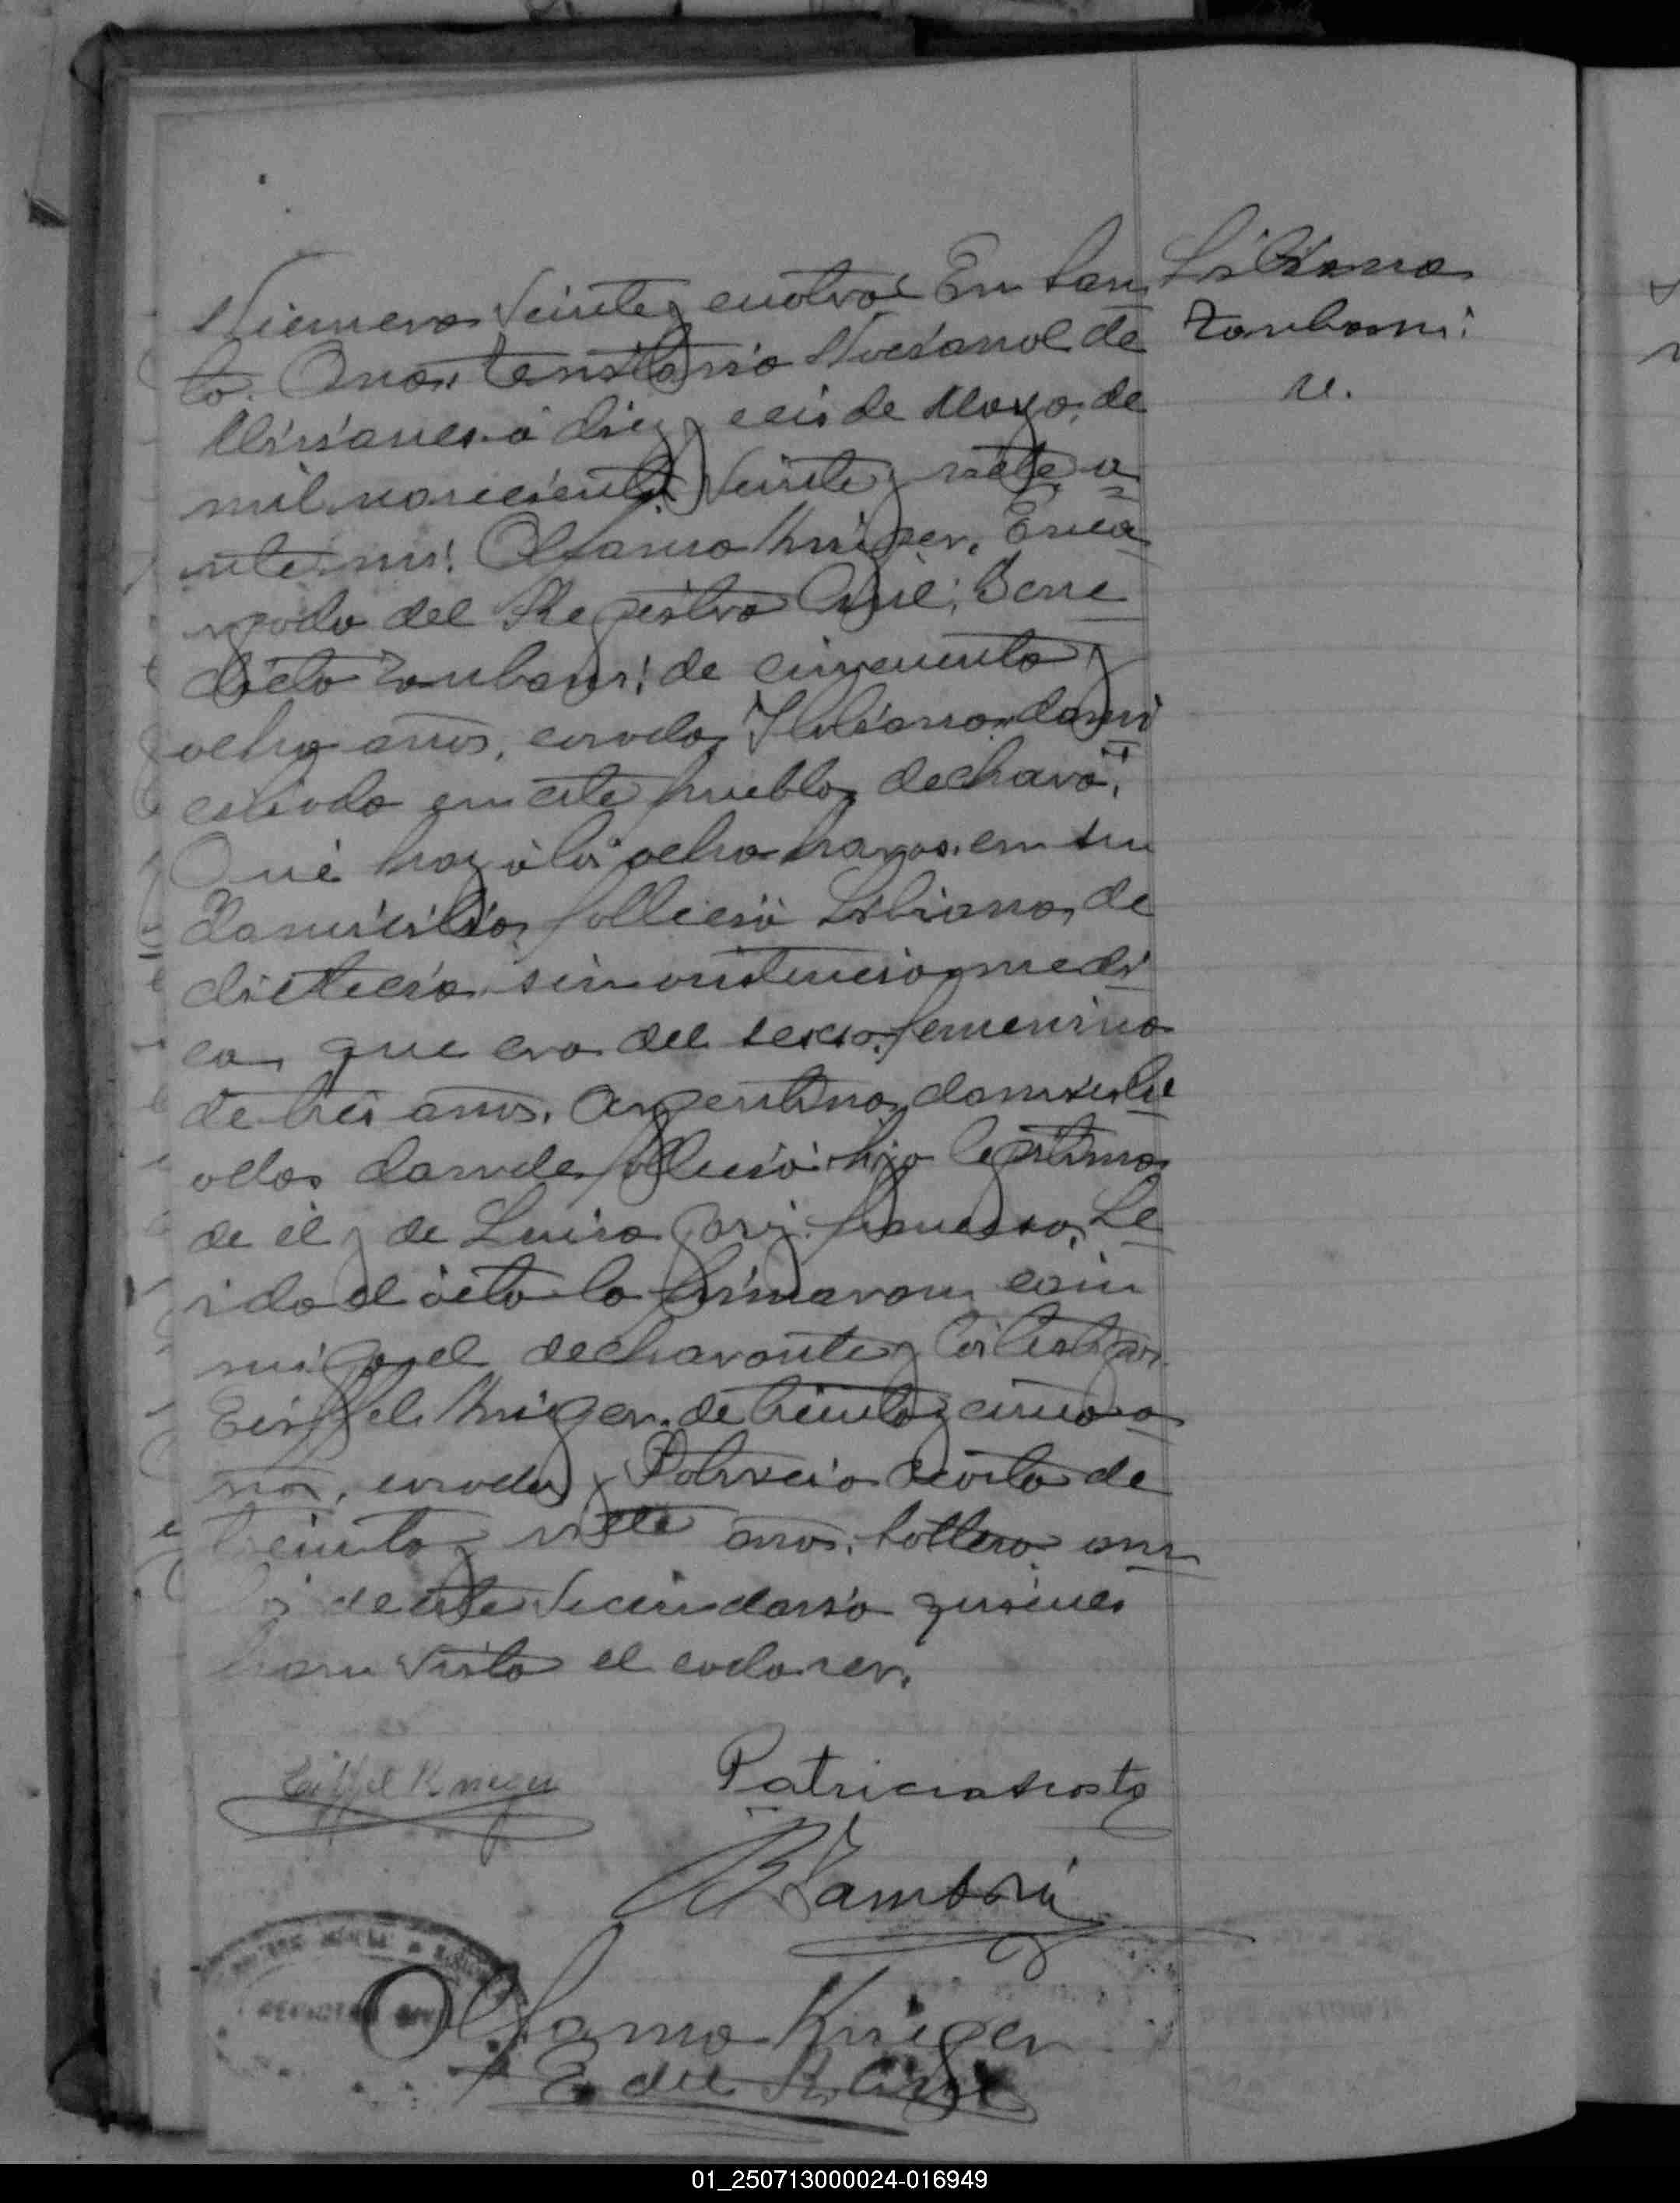 Numero veinte y cuatro: En San
ta Ana, territorio Nacional de
Misiones a diez y seis de Mayo de
mil novecientos veinte y siete a
nte mi: Alfonso Krieger, Enca
rgado del Registro Civil; Bene
dicto Zamboni: de cincuenta y
ocho años, casado, Italiano, domi
ciliado en este pueblo, declaró:
Que hoy á las ocho horas, en su
domicilio, falleció Libiana, de
difteria, sin asistencia medi
ca, que era del sexo femenino
de tres años, Argentina, domicili
ada donde falleció: hija legitima
de él y de Luisa francesa, Le
ida el ácta la firmaron con
migo el declarante y los testigos.
Eiffel Krieger, de treinta y cinco a
ños, casado y Patricio Acosta de
treinta y siete años, soltero, am
bos de este vecindario quienes
han visto el cadaver.
Libiana
Zamboni
Eiffel Krieger
Patricio Acosta
B Zamboni
REGISTRO CIVIL
Alfonso Krieger
E. del R. Civil
01_250713000024-016949